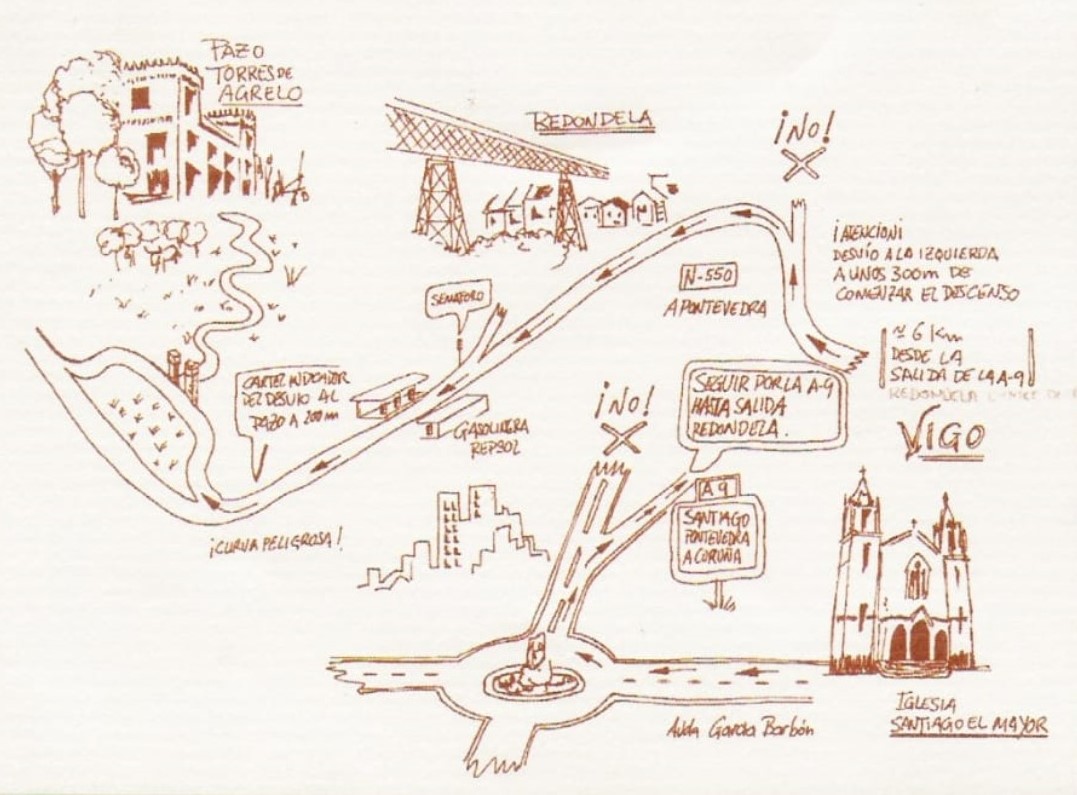 PAZO
TORRES DE
AGRELO
REDONDELA
¡NO!
¡ATENCION!
DESVÍO A LA IZQUIERDA
A UNOS 300m DE
COMENZAR EL DESCENSO
N-550
A PONTEVEDRA
SEMAFORO
≈ 6 Km
DESDE LA
SALIDA DE LA A-9
REDONDELA
CARTEL INDICADOR
DEL DESVIO AL
PAZO A 200 m
GASOLINERA
REPSOL
¡NO!
SEGUIR POR LA A-9
HASTA SALIDA
REDONDELA.
VIGO
A 9
SANTIAGO
PONTEVEDRA
A CORUÑA
¡CURVA PELIGROSA!
IGLESIA
SANTIAGO EL MAYOR
Avda García Barbón